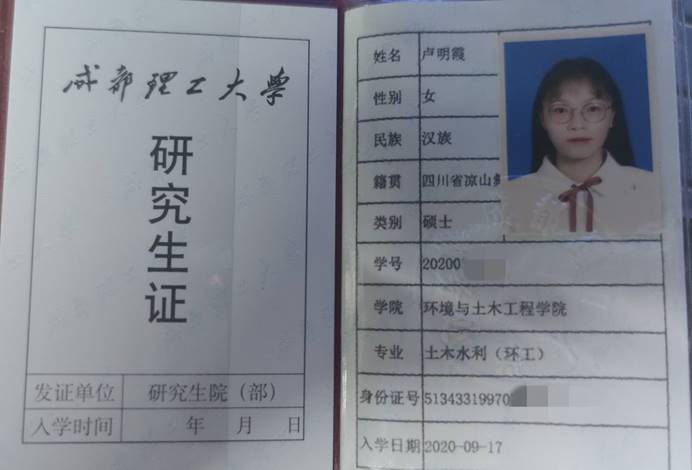 成都理工大学
研究生证
发证单位 研究生院（部）
入学时间 年 月 日
姓名 卢明霞
性别 女
民族 汉族
籍贯 四川省凉山
类别 硕士
学号 20200
学院 环境与土木工程学院
专业 土木水利（环工）
身份证号 51343319970
入学日期 2020-09-17